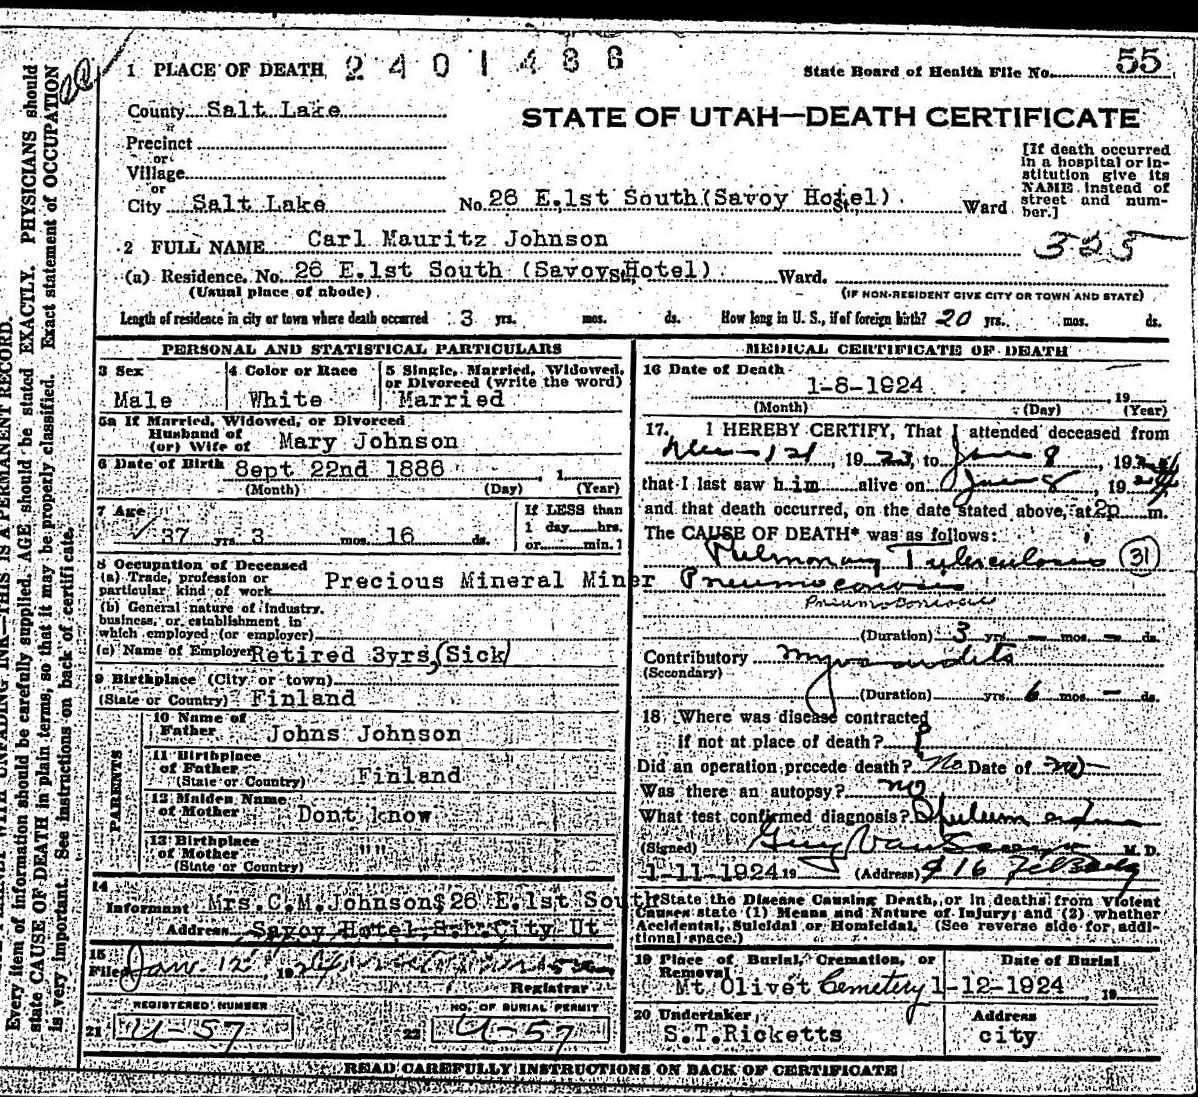 1 PLACE OF DEATH 2401486
State Board of Health File No. 55
County Salt Lake
STATE OF UTAH—DEATH CERTIFICATE
Precinct
or
Village
or
City Salt Lake No. 26 E.1st South(Savoy Hotel) St. Ward
[If death occurred
in a hospital or in-
stitution give its
NAME instead of
street and num-
ber.]
2 FULL NAME Carl Mauritz Johnson
325
(a) Residence. No. 26 E.1st South (Savoy Hotel) St. Ward.
(Usual place of abode)
(IF NON-RESIDENT GIVE CITY OR TOWN AND STATE)
Length of residence in city or town where death occurred 3 yrs. mos. ds. How long in U. S., if of foreign birth? 20 yrs. mos. ds.
PERSONAL AND STATISTICAL PARTICULARS
3 Sex
Male
4 Color or Race
White
5 Single, Married, Widowed,
or Divorced (write the word)
Married
5a If Married, Widowed, or Divorced
Husband of
(or) Wife of Mary Johnson
6 Date of Birth Sept 22nd 1886, 1
(Month) (Day) (Year)
7 Age
37 yrs. 3 mos. 16 ds.
If LESS than
1 day hrs.
or min.]
8 Occupation of Deceased
(a) Trade, profession or
particular kind of work Precious Mineral Miner
(b) General nature of industry,
business, or establishment in
which employed (or employer)
(c) Name of Employer Retired 3yrs,(Sick)
9 Birthplace (City or town)
(State or Country) Finland
PARENTS
10 Name of
Father Johns Johnson
11 Birthplace
of Father
(State or Country) Finland
12 Maiden Name
of Mother Dont know
13 Birthplace
of Mother " "
(State or Country)
14
Informant Mrs.C.M.Johnson$ 26 E.1st South
Address Savoy Hotel,S.L.City Ut
15
Filed Jan. 12, 1924
Registrar
REGISTERED NUMBER
21 U-57
NO. OF BURIAL PERMIT
22 U-57
MEDICAL CERTIFICATE OF DEATH
16 Date of Death
1-8-1924 19
(Month) (Day) (Year)
17. I HEREBY CERTIFY, That I attended deceased from
1923, to Jan 8, 1924
that I last saw him alive on Jan 8, 1924
and that death occurred, on the date stated above, at 2p m.
The CAUSE OF DEATH* was as follows:
Pulmonary Tuberculosis 31
Pneumoconiosis
Pneumoconiosis
(Duration) 3 yrs. — mos. — ds.
Contributory Myocarditis
(Secondary)
(Duration) yrs. 6 mos. — ds.
18 Where was disease contracted
if not at place of death? ?
Did an operation precede death? No Date of no
Was there an autopsy? no
What test confirmed diagnosis?
(Signed) Guy Van M. D.
1-11-1924 19 (Address) 916
*State the Disease Causing Death, or in deaths from Violent
Causes state (1) Means and Nature of Injury; and (2) whether
Accidental, Suicidal or Homicidal. (See reverse side for addi-
tional space.)
19 Place of Burial, Cremation, or
Removal
Mt Olivet Cemetery
Date of Burial
1-12-1924 19
20 Undertaker
S.T.Ricketts
Address
city
READ CAREFULLY INSTRUCTIONS ON BACK OF CERTIFICATE
WITH UNFADING INK—THIS IS A PERMANENT RECORD.
Every item of information should be carefully supplied. AGE should be stated EXACTLY. PHYSICIANS should
state CAUSE OF DEATH in plain terms, so that it may be properly classified. Exact statement of OCCUPATION
is very important. See instructions on back of certificate.